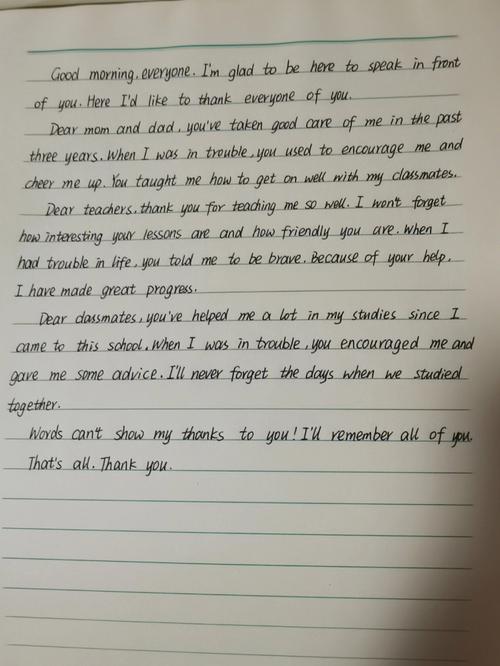 Good morning, everyone. I'm glad to be here to speak in front
of you. Here I'd like to thank everyone of you.
Dear mom and dad, you've taken good care of me in the past
three years. When I was in trouble, you used to encourage me and
cheer me up. You taught me how to get on well with my classmates.
Dear teachers, thank you for teaching me so well. I won't forget
how interesting your lessons are and how friendly you are. When I
had trouble in life, you told me to be brave. Because of your help,
I have made great progress.
Dear classmates, you've helped me a lot in my studies since I
came to this school. When I was in trouble, you encouraged me and
gave me some advice. I'll never forget the days when we studied
together.
Words can't show my thanks to you! I'll remember all of you.
That's all. Thank you.